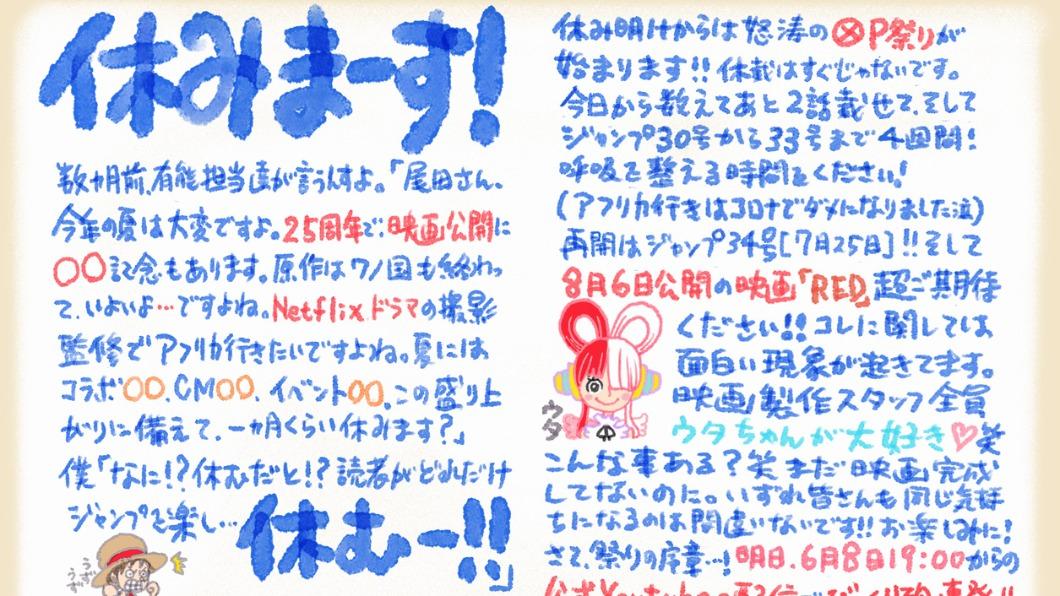 休みまーす!
数カ月前、有能担当達が言うんすよ。「尾田さん、
今年の夏は大変ですよ。25周年で、映画公開に
〇〇記念もあります。原作はワノ国も終わっ
て、いよいよ…ですよね。Netflixドラマの撮影
監修でアフリカ行きたいですよね。夏には
コラボ〇〇、CM〇〇、イベント〇〇、この盛り上
がりに備えて、一カ月くらい休みます?」
僕「なに!?休むだと!?読者がどれだけ
ジャンプを楽し…
休むーー!!」
うずうず
休み明けからは怒涛の
P祭りが
始まります!!休載はすぐじゃないです。
今日から数えてあと2話載せて、そして
ジャンプ30号から33号まで4週間!
呼吸を整える時間をください!
(アフリカ行きはコロナでダメになりました泣)
再開はジャンプ34号[7月25日]!!そして
8月6日公開の映画「RED」超ご期待
ください!!コレに関しては
面白い現象が起きてます。
映画製作スタッフ全員
ウタちゃんが大好き♡笑
ウタ
こんな事ある?笑 まだ映画完成
してないのに。いずれ皆さんも同じ気持
ちになるのは間違いないです!!お楽しみに!
さて、祭りの序章…!明日、6月8日19:00からの
公式Youtubeの配信で